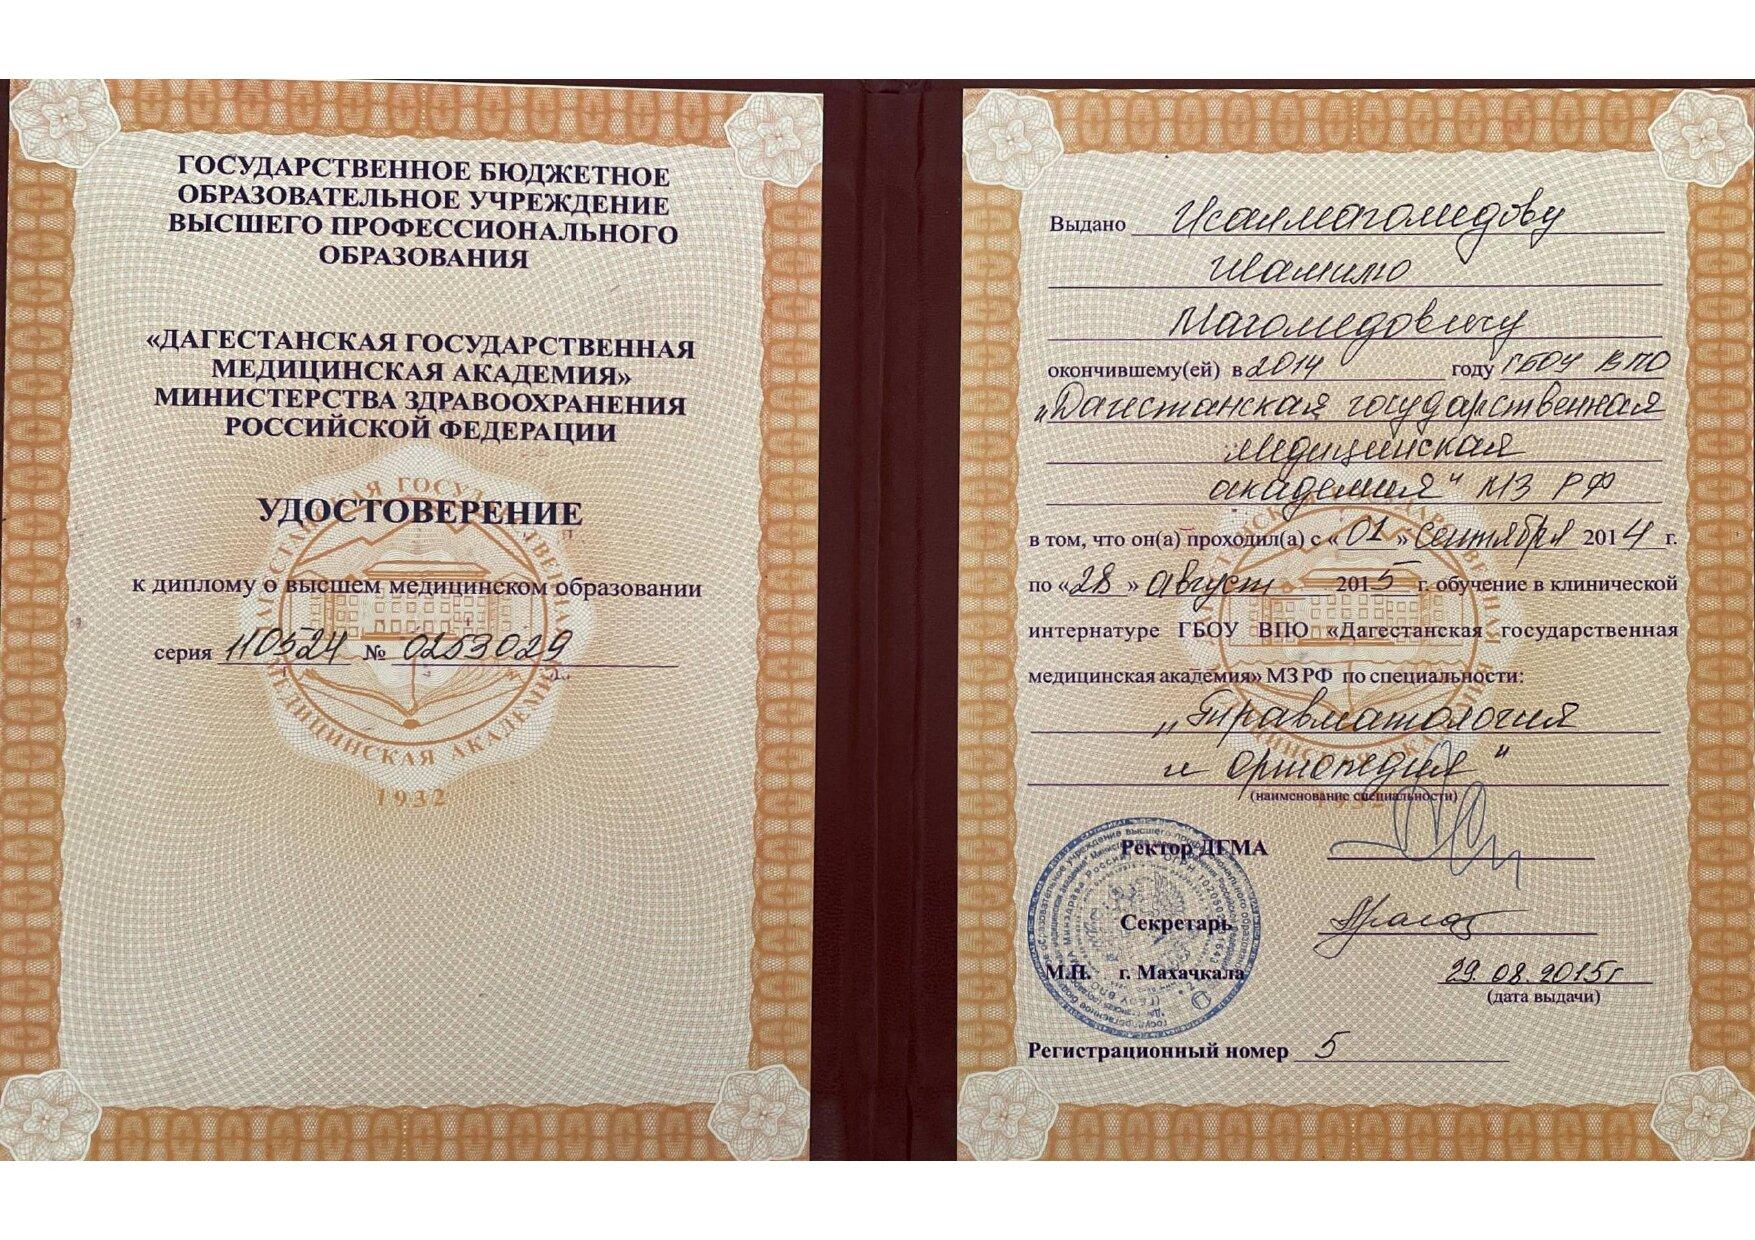 ГОСУДАРСТВЕННОЕ БЮДЖЕТНОЕ
ОБРАЗОВАТЕЛЬНОЕ УЧРЕЖДЕНИЕ
ВЫСШЕГО ПРОФЕССИОНАЛЬНОГО
ОБРАЗОВАНИЯ
«ДАГЕСТАНСКАЯ ГОСУДАРСТВЕННАЯ
МЕДИЦИНСКАЯ АКАДЕМИЯ»
МИНИСТЕРСТВА ЗДРАВООХРАНЕНИЯ
РОССИЙСКОЙ ФЕДЕРАЦИИ
УДОСТОВЕРЕНИЕ
к диплому о высшем медицинском образовании
серия 110524 № 0253029
ДАГЕСТАНСКАЯ ГОСУДАРСТВЕННАЯ МЕДИЦИНСКАЯ АКАДЕМИЯ
1932
Выдано Исалмагомедову
Шамилю
Магомедовичу
окончившему(ей) в 2014 году ГБОУ ВПО
„Дагестанская государственная
медицинская
академия" МЗ РФ
в том, что он(а) проходил(а) с «01» сентября 2014 г.
по «28» август 2015 г. обучение в клинической
интернатуре ГБОУ ВПО «Дагестанская государственная
медицинская академия» МЗ РФ по специальности:
„Травматология
и ортопедия"
(наименование специальности)
Ректор ДГМА
Секретарь
М.П. г. Махачкала 29.08.2015г
(дата выдачи)
Регистрационный номер 5